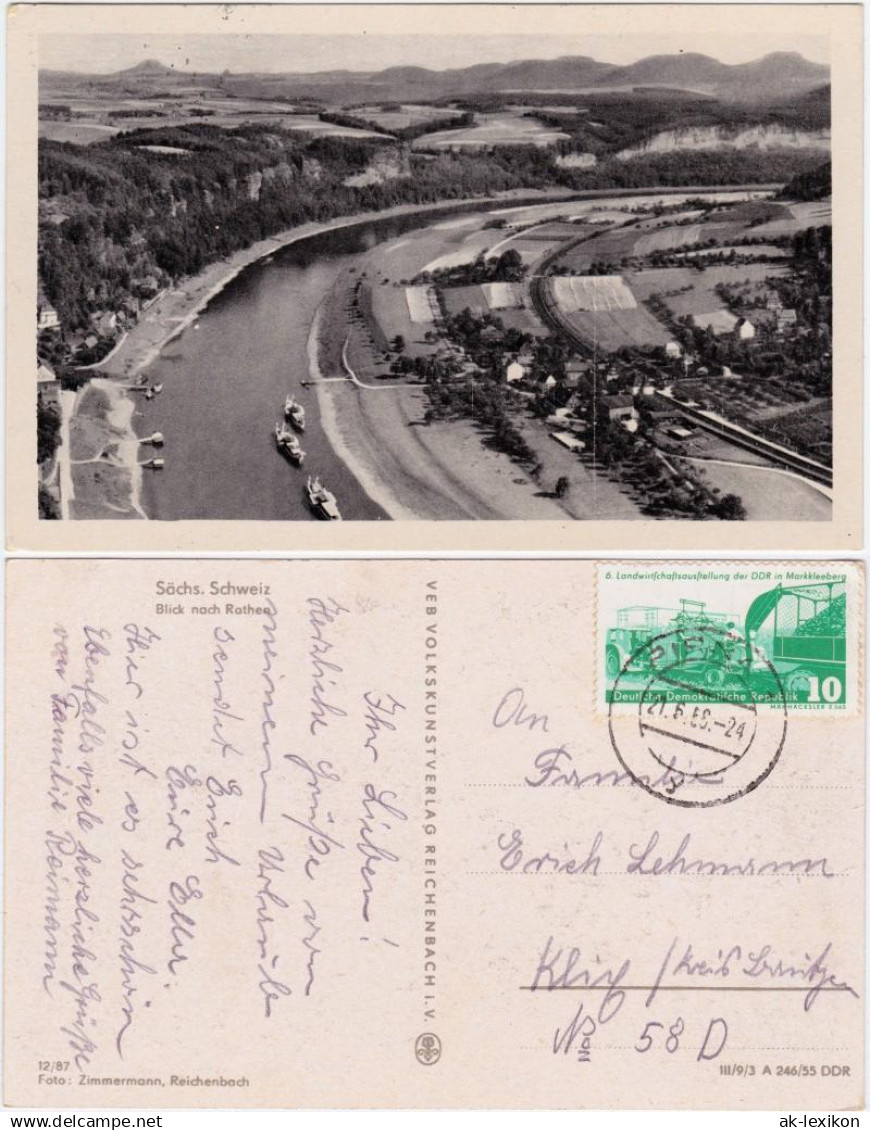 Sächs. Schweiz
Blick nach Rathen
Ihr Lieben!
Herzliche Grüße von
meinem Urlaub
sendet Erich
Eure Eller.
Hier ist es sehr schön
Ebenfalls viele herzliche Grüße
von Familie Reimann
12/87
Foto: Zimmermann, Reichenbach
VEB VOLKSKUNSTVERLAG REICHENBACH i. V.
6. Landwirtschaftsausstellung der DDR in Markkleeberg
Deutsche Demokratische Republik 10
MÄHHÄCKSLER E 065
21.6.58.-24
An
Familie
Erich Lehmann
Klix / Kreis Bautzen
No 58 D
III/9/3 A 246/55 DDR
ak-lexikon